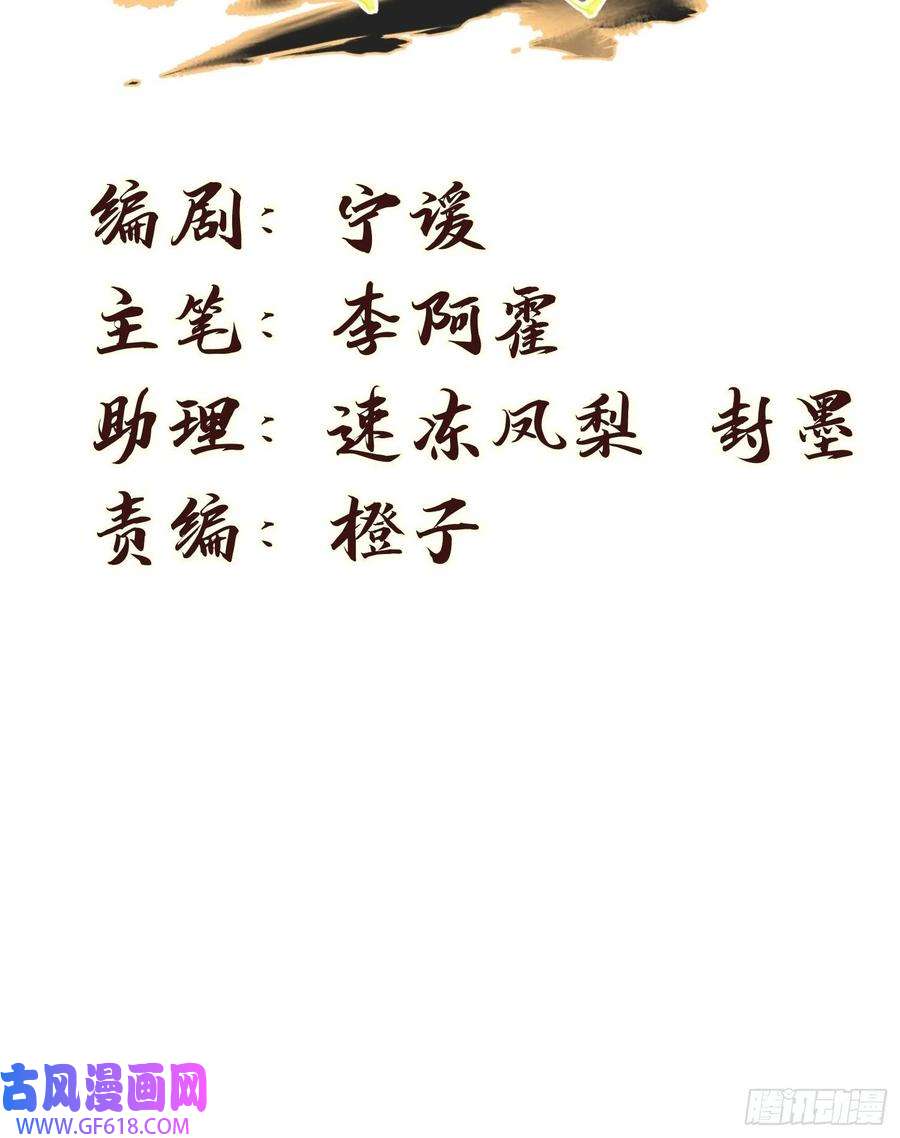 编剧: 宁谖
主笔: 李阿霍
助理: 速冻凤梨 封墨
责编: 橙子
古风漫画网
WWW.GF618.COM
腾讯动漫